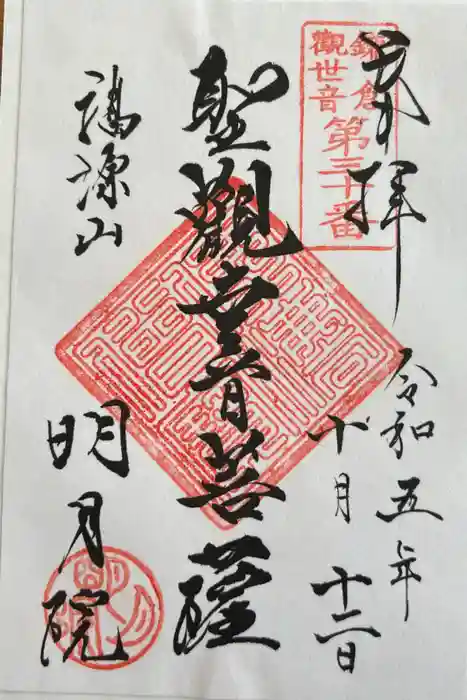 奉拝
鎌倉
觀世音
第三十番
令和五年
十月十二日
聖觀世音菩薩
福源山
明月院